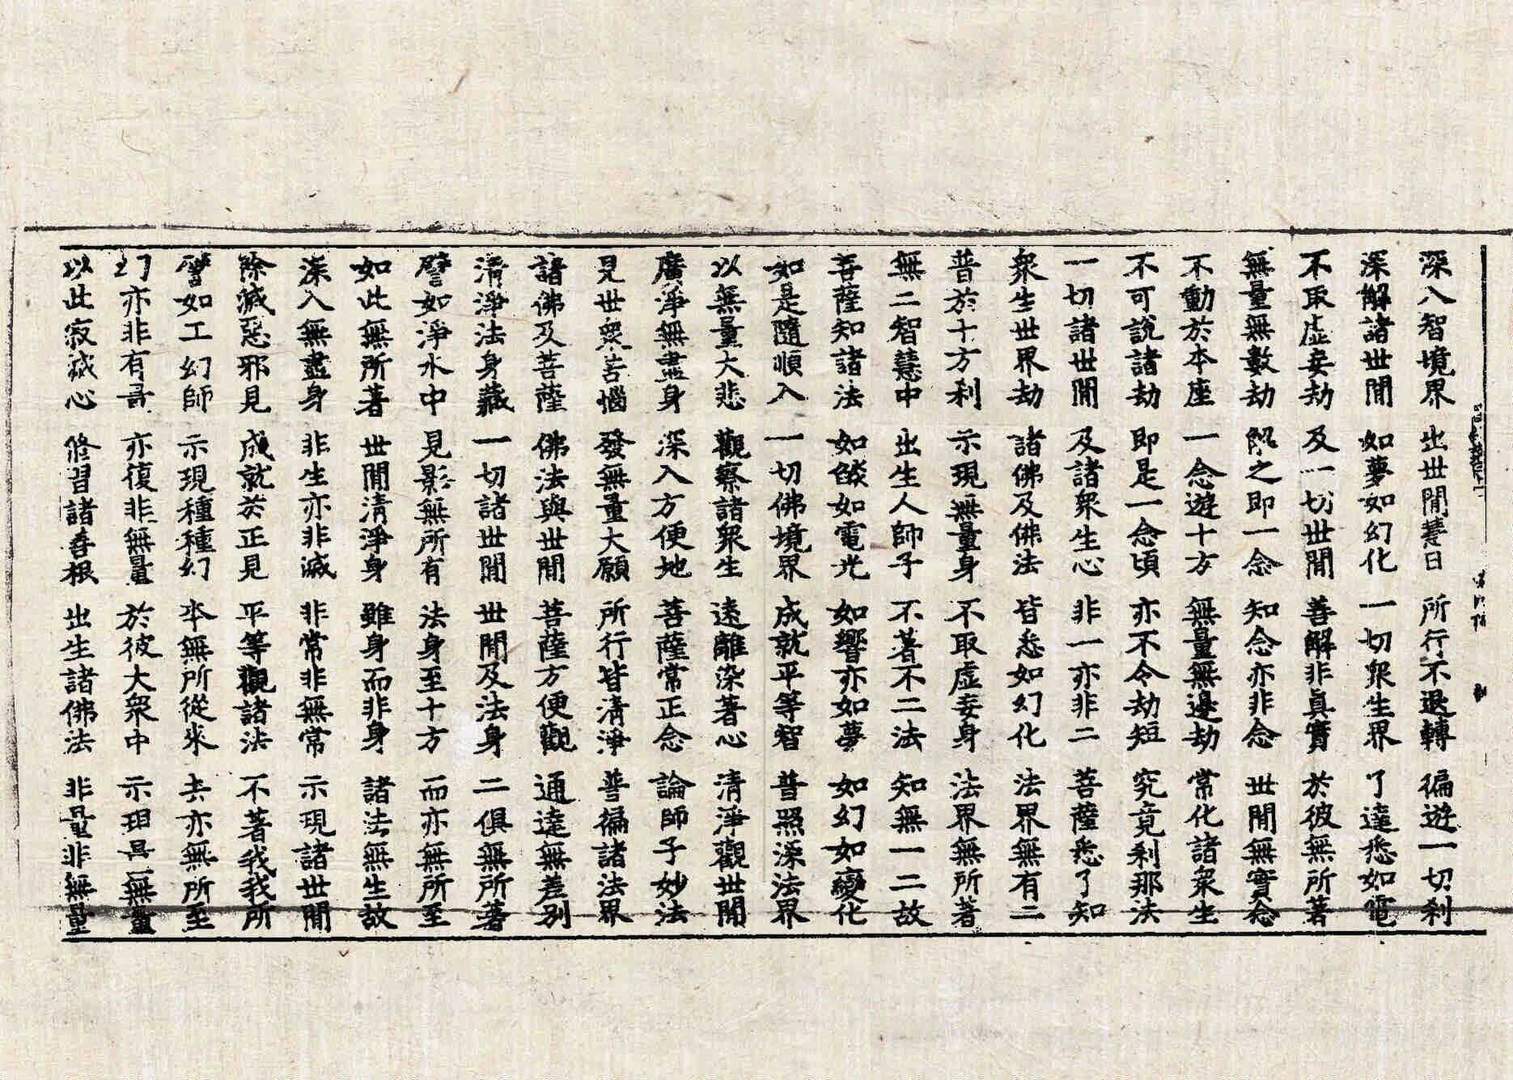 深入智境界 出世間慧日 所行不退轉 徧遊一切刹
深解諸世間 如夢如幻化 一切衆生界 了達悉如電
不取虛妄劫 及一切世間 善解非真實 於彼無所著
無量無數劫 解之即一念 知念亦非念 世間無實念
不動於本座 一念遊十方 無量無邊劫 常化諸衆生
不可說諸劫 即是一念頃 亦不令劫短 究竟刹那法
一切諸世間 及諸衆生心 非一亦非二 菩薩悉了知
衆生世界劫 諸佛及佛法 皆悉如幻化 法界無有二
普於十方刹 示現無量身 不取虛妄身 法界無所著
無二智慧中 出生人師子 不著不二法 知無一二故
菩薩知諸法 如燄如電光 如響亦如夢 如幻如變化
如是隨順入 一切佛境界 成就平等智 普照深法界
以無量大悲 觀察諸衆生 遠離染著心 清淨觀世間
廣淨無盡身 深入方便地 菩薩常正念 論師子妙法
見世衆苦惱 發無量大願 所行皆清淨 普徧諸法界
諸佛及菩薩 佛法與世間 菩薩方便觀 通達無差別
清淨法身藏 一切諸世間 世間及法身 二俱無所著
譬如淨水中 見影無所有 法身至十方 而亦無所至
如此無所著 世間清淨身 雖身而非身 諸法無生故
深入無盡身 非生亦非滅 非常非無常 示現諸世間
除滅惡邪見 成就於正見 平等觀諸法 不著我我所
譬如工幻師 示現種種幻 本無所從來 去亦無所至
幻亦非有量 亦復非無量 於彼大衆中 示現量無量
以此寂滅心 修習諸善根 出生諸佛法 非量非無量